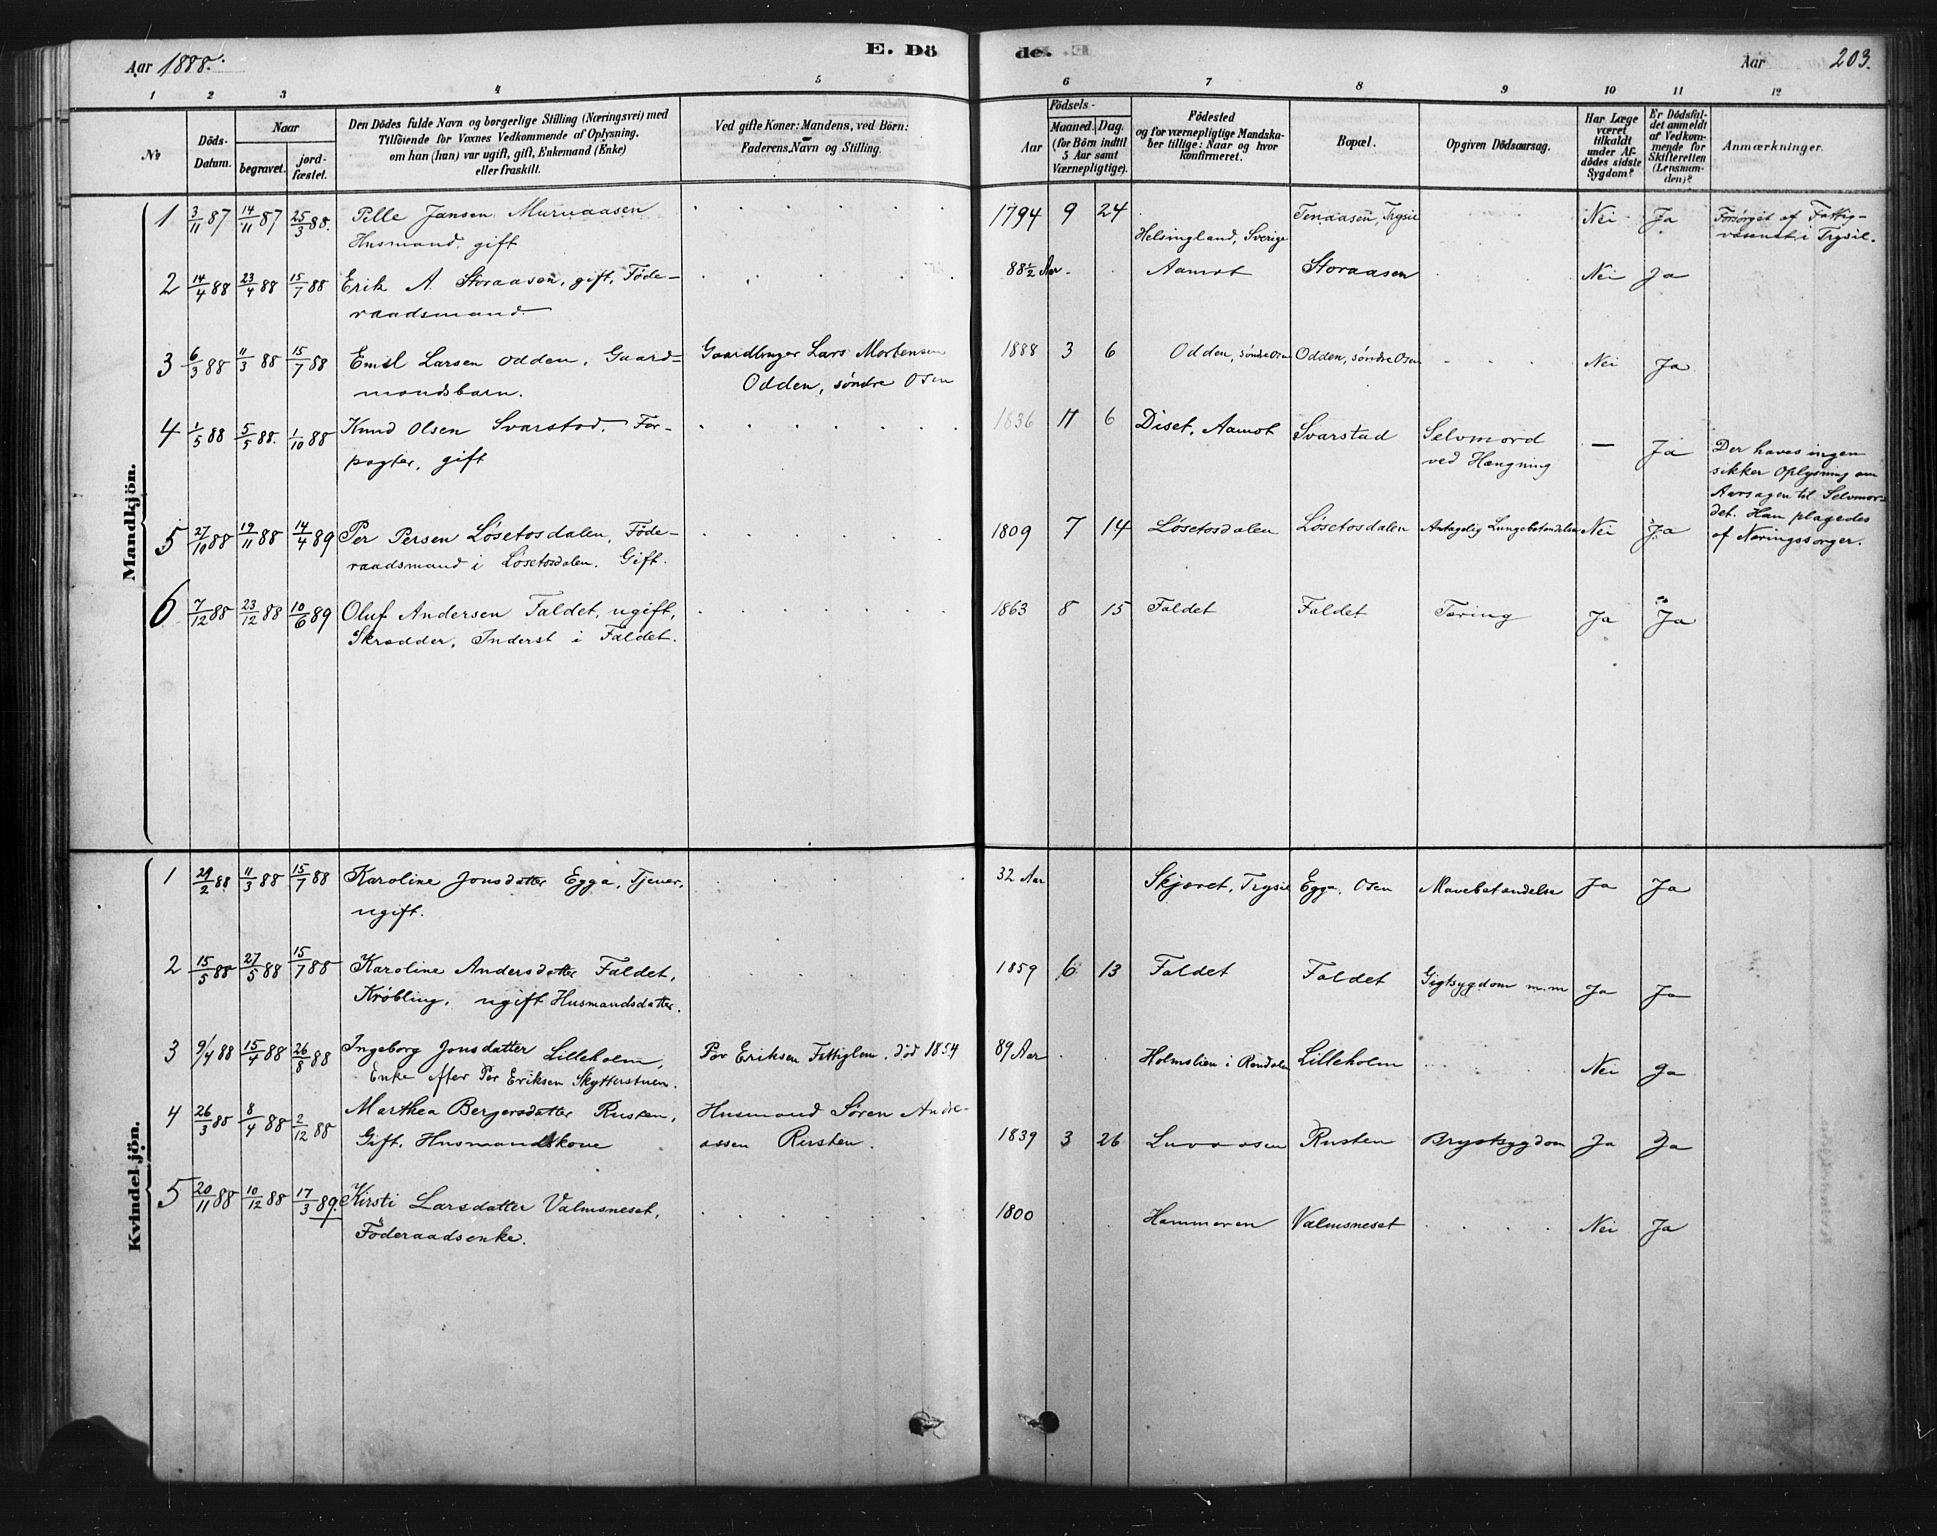 Aar 1888.
E. Dö
de.
Aar
203.
1 2 3 4 5 6 7 8 9 10 11 12
No
Döds-
Datum.
Naar
begravet.
jord-
fæstet.
Den Dödes fulde Navn og borgerlige Stilling (Næringsvei) med
Tilföiende for Voxnes Vedkommende af Oplysning,
om han (hun) var ugift, gift, Enkemand (Enke)
eller fraskilt.
Ved gifte Koner: Mandens, ved Börn:
Faderens Navn og Stilling.
Födsels-
Aar
Maaned. Dag.
(for Börn indtil
5 Aar samt
Værnepligtige).
Födested
og for værnepligtige Mandska-
ber tillige: Naar og hvor
konfirmeret.
Bopæl.
Opgiven Dödsaarsag.
Har Læge
været
tilkaldt
under Af-
dödes sidste
Sygdom?
Er Dödsfal-
det anmeldt
af Vedkom-
mende for
Skifteretten
(Lensman-
den)?
Anmærkninger.
Mandkjön.
1 3/11 87 14/11 87 25/3 88. Pelle Jansen Muruaasen
Husmand, gift
1794 9 24 Helsingland, Sverige Tenaasen, Trysil Nei Ja Forsørget af Fattig-
væsenet i Trysil.
2 14/4 88 23/4 88 15/7 88 Erik A Storaasen, gift, Føde-
raadsmand
88 1/2 Aar Aamot Storaasen Nei Ja
3 6/3 88 11/3 88 15/7 88 Emil Larsen Odden, Gaard-
mandsbarn.
Gaardbruger Lars Mortensen
Odden, søndre Osen
1888 3 6 Odden, søndre Osen Odden, søndre Osen Nei Ja
4 1/5 88 5/5 88. 1/10 88 Knud Olsen Svarstad, For-
pagter, gift
1836 11 6 Diset, Aamot Svarstad Selvmord
ved Hængning
— Ja Der haves ingen
sikker Oplysning om
Aarsagen til Selvmor-
det. Han plagedes
af Næringssorger.
5 27/10 88 19/11 88 14/4 89 Per Persen Løsetosdalen, Føde-
raadsmand i Løsetosdalen. Gift.
1809 7 14 Løsetosdalen Løsetosdalen Antagelig Lungebetændelse Nei Ja
6 7/12 88 23/12 88 10/6 89 Oluf Andersen Faldet, ugift,
Skrædder, Inderst i Faldet.
1863 8 15 Faldet Faldet Tæring Ja Ja
Kvindekjön.
1 29/2 88 11/3 88 15/7 88 Karoline Jonsdatter Egga, Tjener,
ugift.
32 Aar Skjæret, Trysil Egga, Osen Mavebetændelse Ja Ja
2 15/5 88 27/5 88 15/7 88 Karoline Andersdatter Faldet,
Krøbling, ugift Husmandsdatter.
1859 6 13 Faldet Faldet Gigtsygdom m.m Ja Ja
3 9/4 88 15/4 88 26/8 88 Ingeborg Jonsdatter Lilleholm,
Enke efter Per Eriksen Skytterstuen.
Per Eriksen Fattiglem, død 1854
89 Aar Holmslien i Rendalen Lilleholm Nei Ja
4 26/3 88 8/4 88 2/12 88 Marthea Bergersdatter Rusten,
Gift, Husmandskone
Husmand Søren Andre-
assen Rusten.
1839 3 26 Rusten Brystsygdom Ja Ja
5 20/11 88 10/12 88 17/3 89. Kirsti Larsdatter Valmsneset,
Føderaadsenke.
1800 Hammeren Valmsneset Nei Ja